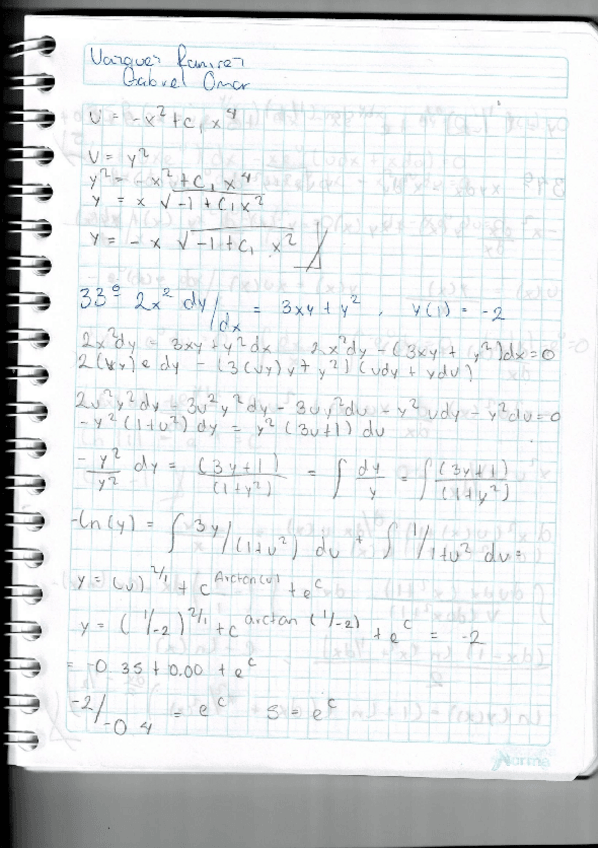 Vazquez Ramirez
Gabriel Omar
V = -x² + C₁ x⁴
V = y²
y² = -x² + C₁ x⁴
y = x √-1 + C₁x²
y = -x √-1 + C₁ x²
33° 2x² dy/dx = 3xy + y², y(1) = -2
2x²dy = 3xy + y²dx 2x²dy - (3xy + y²)dx = 0
dy - (3(vy)y + y²) (vdy + ydv)
2v²y²dy - 3v²y²dy - 3vy³dv - y²vdy - y²dv = 0
-y²(1+v²) dy = y²(3v+1) dv
- y²/y² dy = (3y+1)/(1+y²) = ∫ dy/y = ∫ (3y+1)/(1+y²)
-ln(y) = ∫ 3y/(1+v²) dv + ∫ 1/1+v² dv =
y = (v)^2/1 + c^Arctan(v) + e^c
y = (1/-2)^2/1 + c^arctan(1/-2) + e^c = -2
= -0.35 + 0.00 + e^c
-2/-0.4 = e^c 5 = e^c
Norma